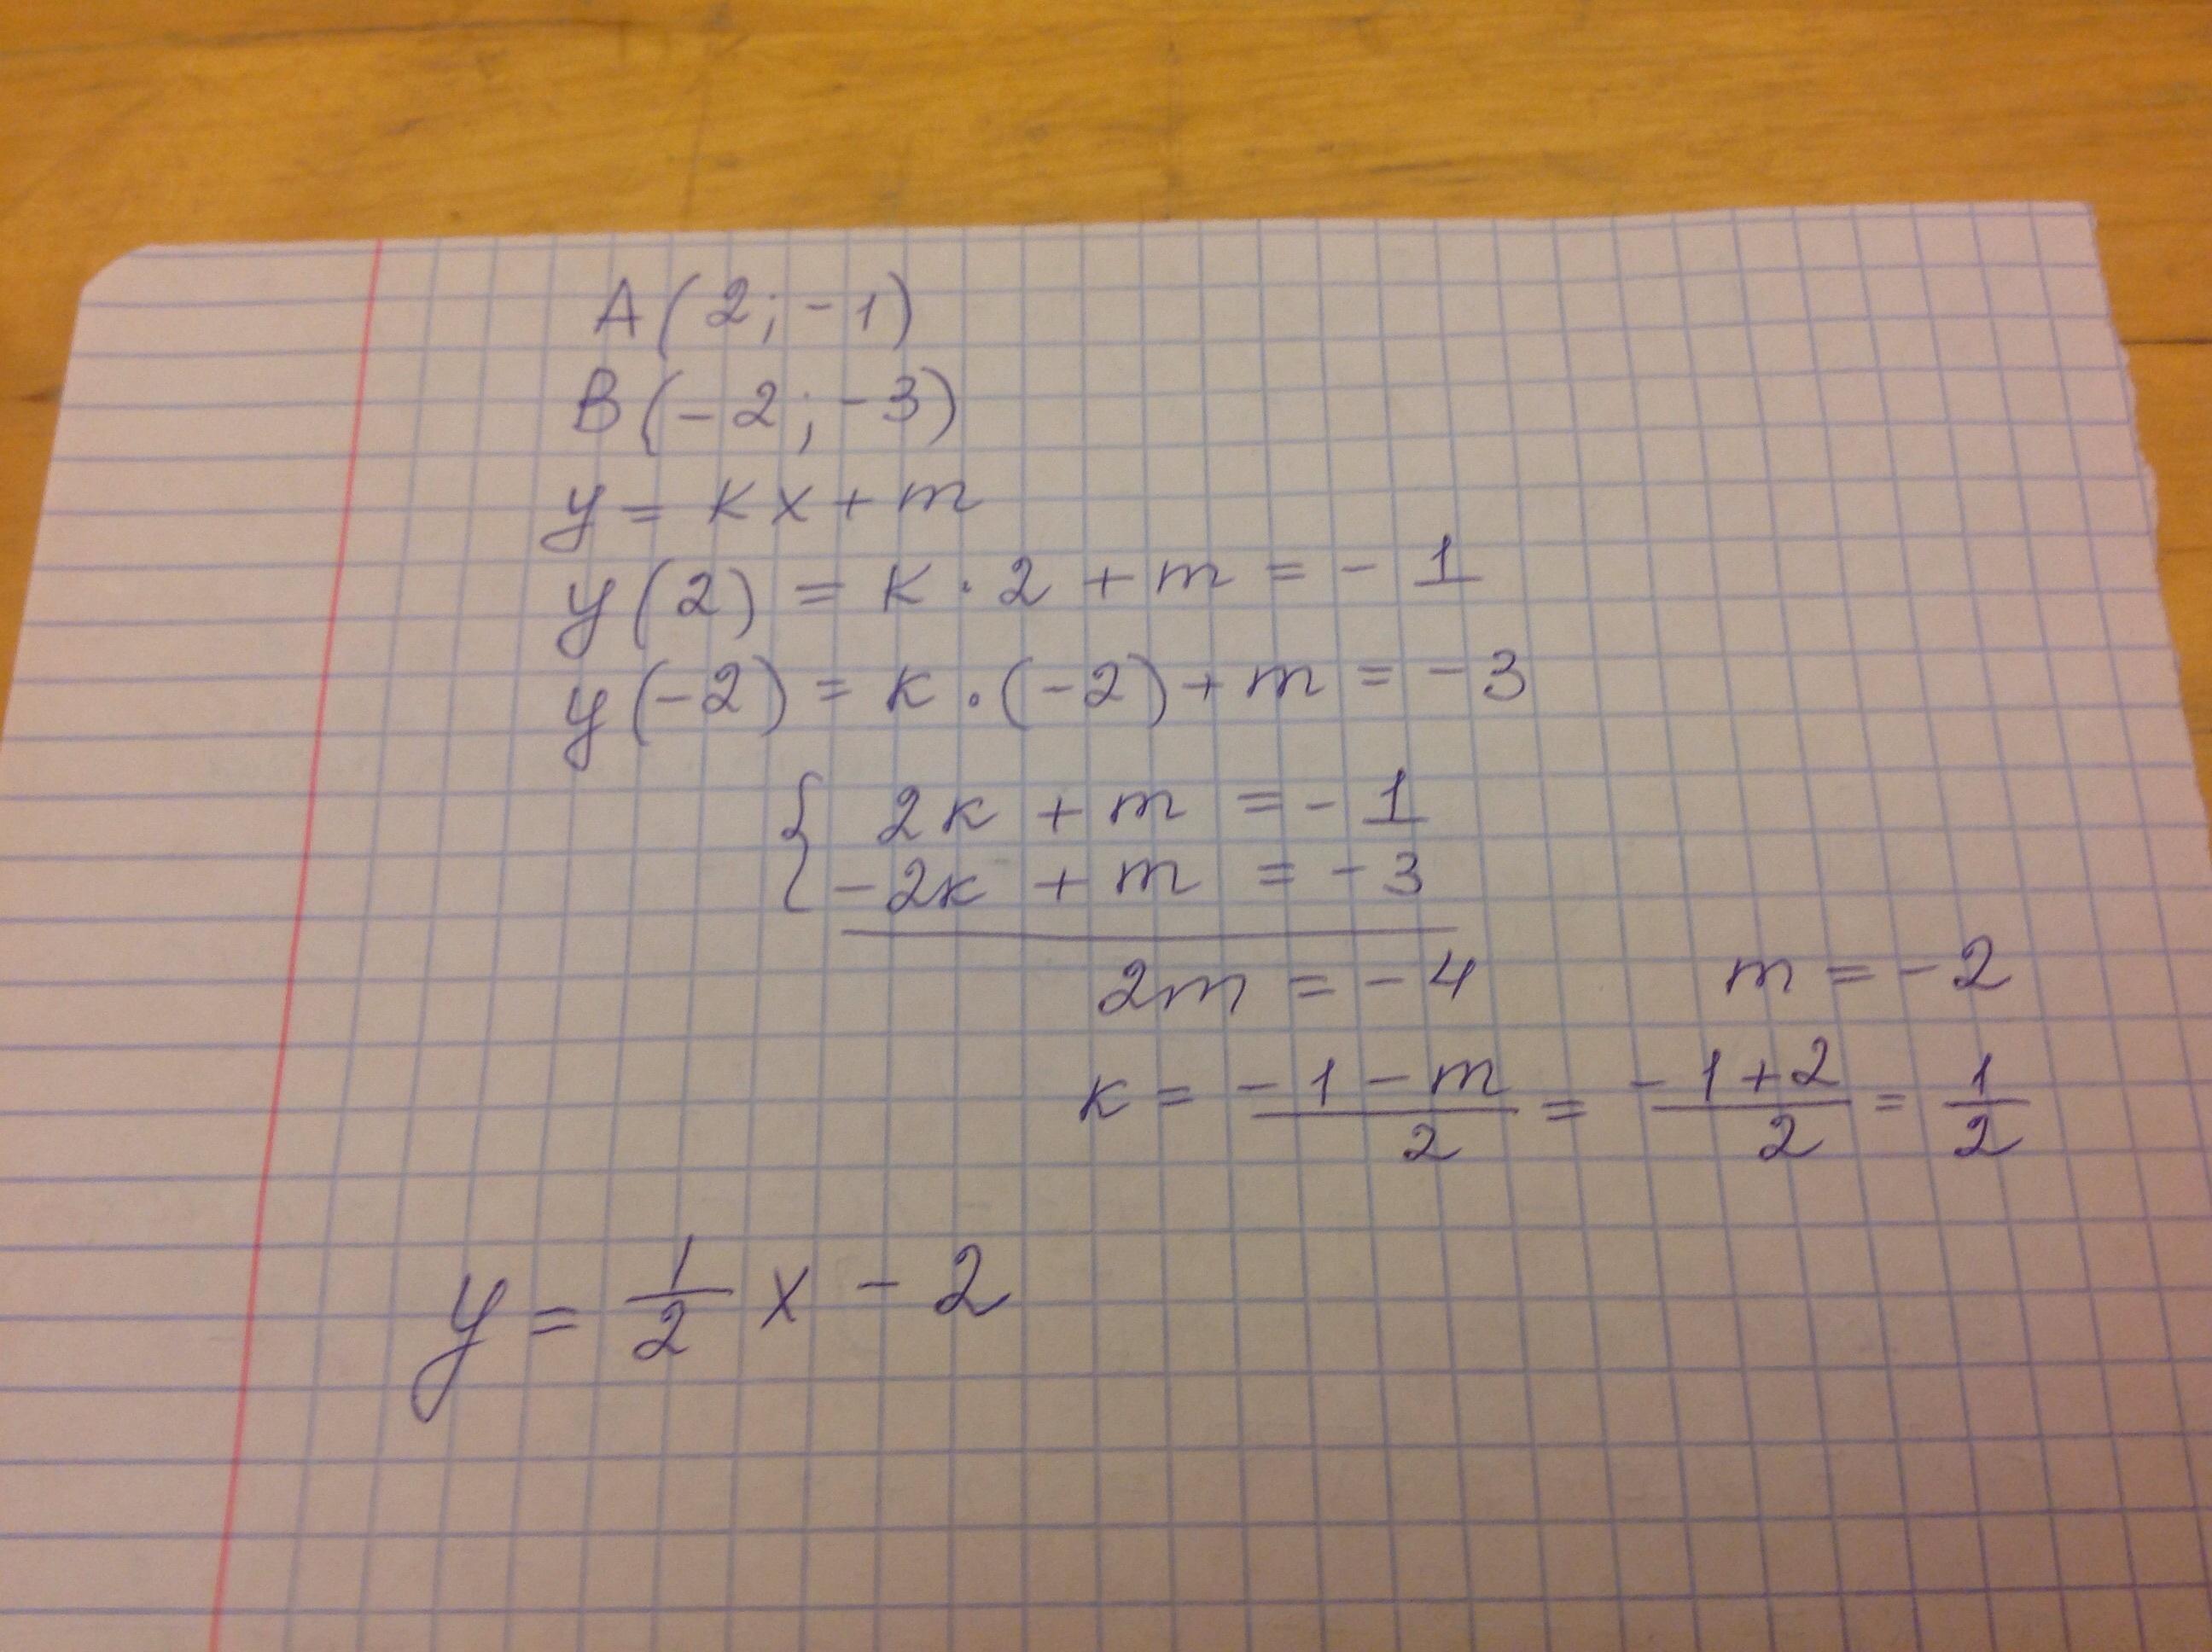 A(2;-1)
B(-2;-3)
y = kx + m
y(2) = k · 2 + m = - 1
y(-2) = k · (-2) + m = - 3
{ 2k + m = - 1
- 2k + m = - 3
2m = - 4 m = - 2
k = \frac{-1-m}{2} = \frac{-1+2}{2} = \frac{1}{2}
y = \frac{1}{2} x - 2